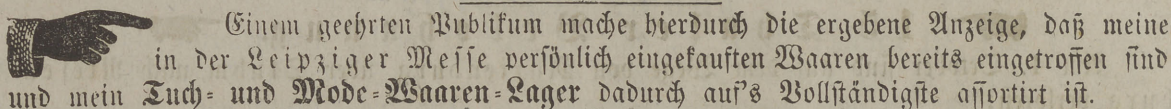 Einem geehrten Publikum mache hierdurch die ergebene Anzeige, daß meine
in der Leipziger Messe persönlich eingekauften Waaren bereits eingetroffen sind
und mein Tuch- und Mode-Waaren-Lager dadurch auf's Vollständigste assortirt ist.